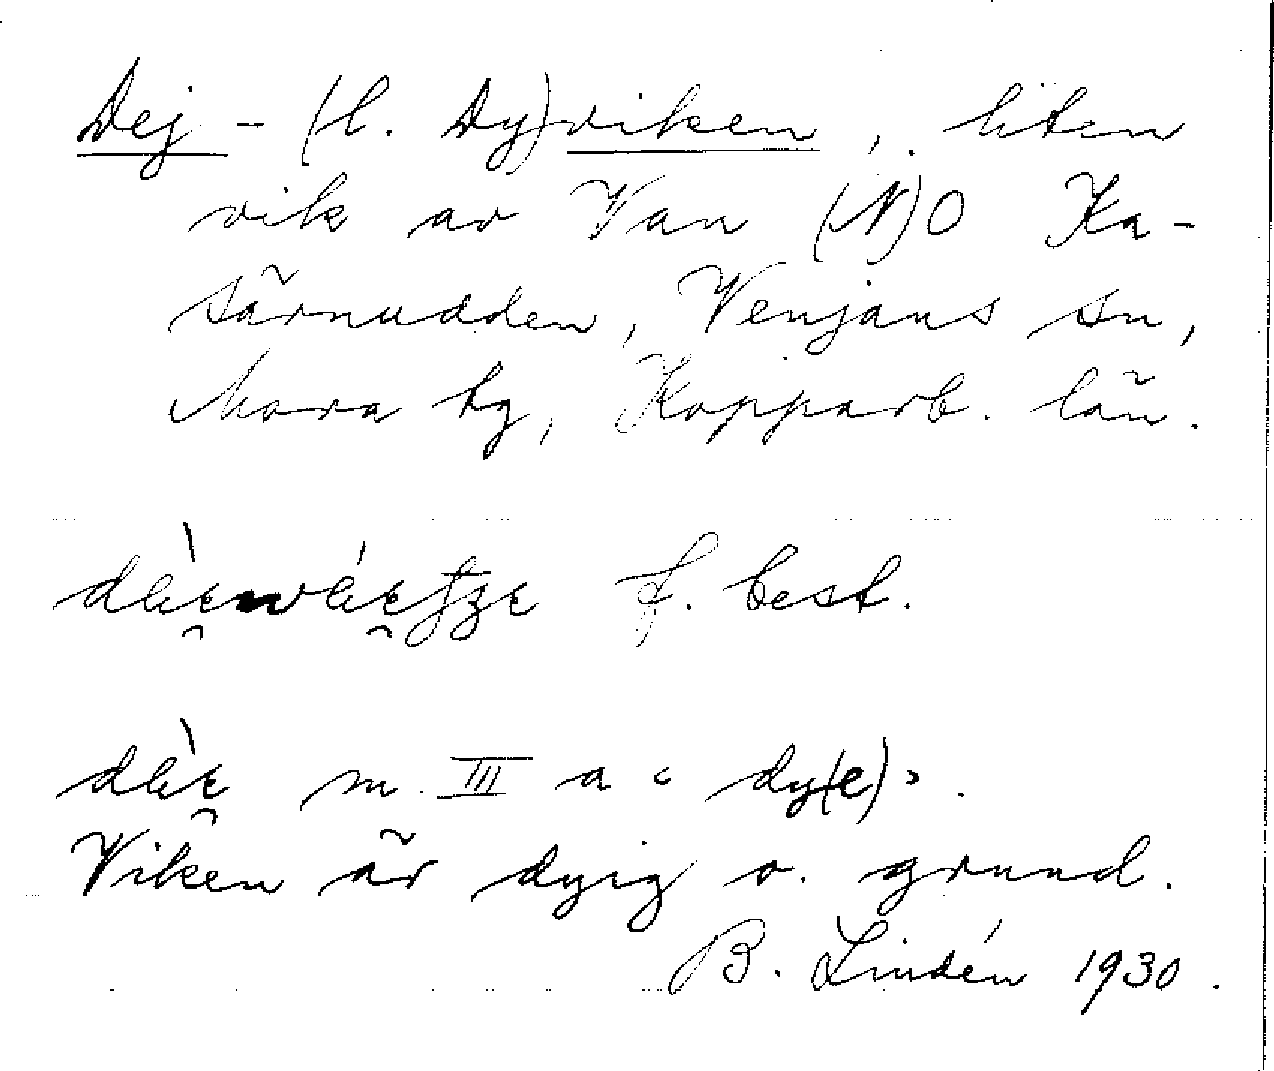 Dej - (l. Dy)viken, liten
vik av Van (N)O Ka-
särnudden, Venjans sn,
Mora tg, Kopparb. län.
f. best.
m. III a < dy(e) >.
Viken är dyig o. grund.
B. Lindén 1930.